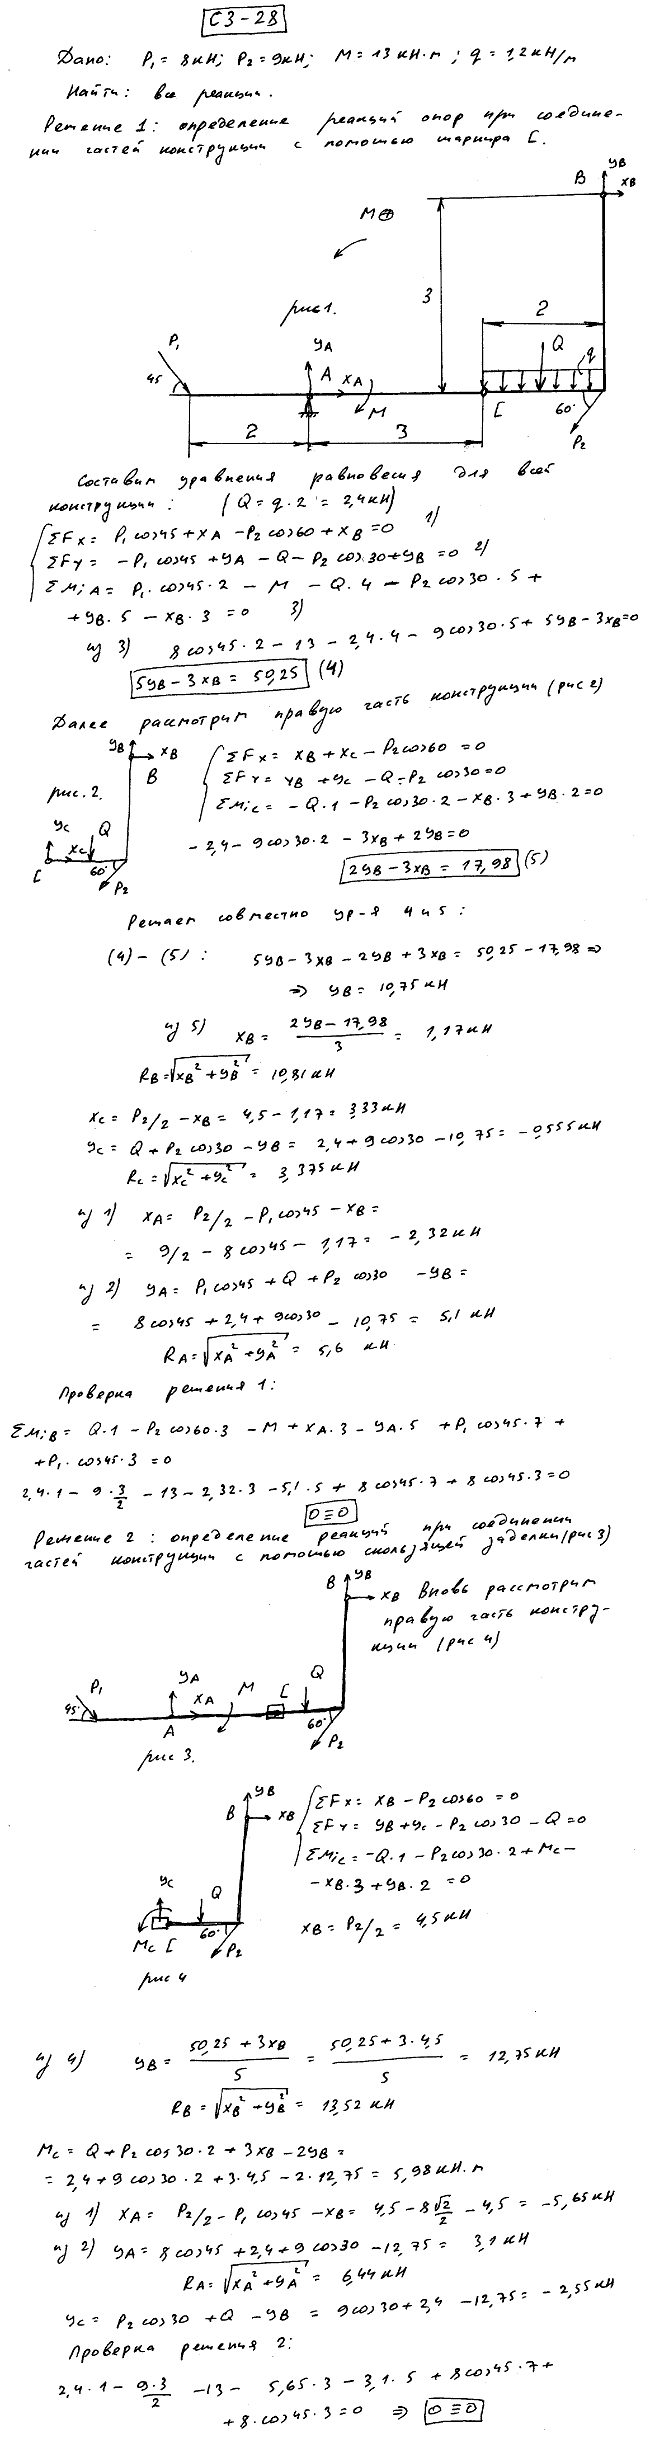 С3-28
Дано: P₁ = 8 кН; P₂ = 9 кН; M = 13 кН·м; q = 1,2 кН/м
Найти: все реакции.
Решение 1: определение реакций опор при соедине-
нии частей конструкции с помощью шарнира C.
yB
B
xB
M⊕
3
рис 1.
2
P₁
yA
Q
q
45
A
xA
M
C
60°
P₂
2
3
Составим уравнения равновесия для всей
конструкции: (Q = q·2 = 2,4 кН)
ΣFx = P₁cos45 + xA - P₂cos60 + xB = 0 1)
ΣFy = -P₁cos45 + yA - Q - P₂cos30 + yB = 0 2)
ΣMiA = P₁·cos45·2 - M - Q·4 - P₂cos30·5 +
+ yB·5 - xB·3 = 0 3)
из 3) 8cos45·2 - 13 - 2,4·4 - 9cos30·5 + 5yB - 3xB = 0
5yB - 3xB = 50,25 (4)
Далее рассмотрим правую часть конструкции (рис 2)
yB
xB
B
рис. 2.
yC
Q
xC
C
60°
P₂
ΣFx = xB + xC - P₂cos60 = 0
ΣFy = yB + yC - Q - P₂cos30 = 0
ΣMiC = -Q·1 - P₂cos30·2 - xB·3 + yB·2 = 0
-2,4 - 9cos30·2 - 3xB + 2yB = 0
2yB - 3xB = 17,98 (5)
Решаем совместно ур-я 4 и 5:
(4) - (5): 5yB - 3xB - 2yB + 3xB = 50,25 - 17,98 ⇒
⇒ yB = 10,75 кН
из 5) xB = (2yB - 17,98)/3 = 1,17 кН
RB = √(xB² + yB²) = 10,81 кН
xC = P₂/2 - xB = 4,5 - 1,17 = 3,33 кН
yC = Q + P₂cos30 - yB = 2,4 + 9cos30 - 10,75 = -0,555 кН
RC = √(xC² + yC²) = 3,375 кН
из 1) xA = P₂/2 - P₁cos45 - xB =
= 9/2 - 8cos45 - 1,17 = -2,32 кН
из 2) yA = P₁cos45 + Q + P₂cos30 - yB =
= 8cos45 + 2,4 + 9cos30 - 10,75 = 5,1 кН
RA = √(xA² + yA²) = 5,6 кН.
Проверка решения 1:
ΣMiB = Q·1 - P₂cos60·3 - M + xA·3 - yA·5 + P₁cos45·7 +
+ P₁·cos45·3 = 0
2,4·1 - 9·3/2 - 13 - 2,32·3 - 5,1·5 + 8cos45·7 + 8cos45·3 = 0
0 ≡ 0
Решение 2: определение реакций при соединении
частей конструкции с помощью скользящей заделки (рис 3)
B
yB
xB
Вновь рассмотрим
правую часть констру-
кции (рис 4)
P₁
45°
yA
xA
M
C
Q
A
60°
P₂
рис 3.
yB
B
xB
yC
Q
MC
C
60°
P₂
рис 4
ΣFx = xB - P₂cos60 = 0
ΣFy = yB + yC - P₂cos30 - Q = 0
ΣMiC = -Q·1 - P₂cos30·2 + MC -
- xB·3 + yB·2 = 0
xB = P₂/2 = 4,5 кН
из 4) yB = (50,25 + 3xB)/5 = (50,25 + 3·4,5)/5 = 12,75 кН
RB = √(xB² + yB²) = 13,52 кН
MC = Q + P₂cos30·2 + 3xB - 2yB =
= 2,4 + 9cos30·2 + 3·4,5 - 2·12,75 = 5,98 кН·м
из 1) xA = P₂/2 - P₁cos45 - xB = 4,5 - 8√2/2 - 4,5 = -5,65 кН
из 2) yA = 8cos45 + 2,4 + 9cos30 - 12,75 = 3,1 кН
RA = √(xA² + yA²) = 6,44 кН
yC = P₂cos30 + Q - yB = 9cos30 + 2,4 - 12,75 = -2,55 кН
Проверка решения 2:
2,4·1 - 9·3/2 - 13 - 5,65·3 - 3,1·5 + 8cos45·7 +
+ 8·cos45·3 = 0 ⇒ 0 ≡ 0